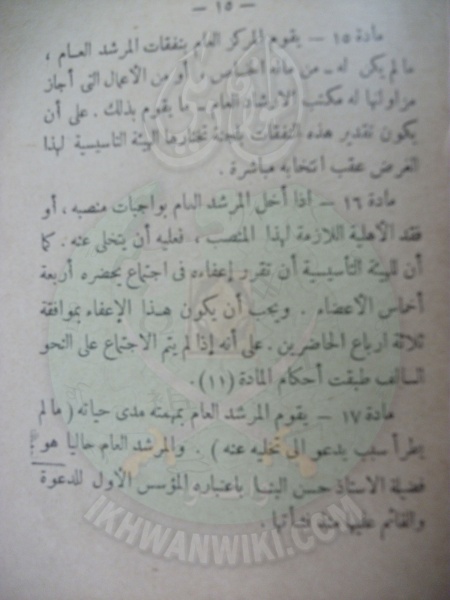 — ١٥ —
مادة ١٥ — يقوم المركز العام بنفقات المرشد العـام ،
ما لم يكن له ـ من ماله الخـاص ، أو من الأعمال التى أجاز
مزاولتها له مكتب الارشاد العام ـ ما يقوم بذلك . على أن
يكون تقدير هذه النفقات بلجنة تختارها الهيئة التأسيسية لهذا
الغرض عقب انتخابه مباشرة .
مادة ١٦ — اذا أخل المرشد العام بواجبات منصبه ، أو
فقد الأهلية اللازمة لهذا المنصب ، فعليه أن يتخلى عنه . كما
أن للهيئة التأسيسية أن تقرر إعفاءه فى اجتماع يحضره أربعة
أخماس الأعضاء . ويجب أن يكون هـذا الإعفاء بموافقة
ثلاثة ارباع الحاضرين . على أنه إذا لم يتم الاجتماع على النحو
السالف طبقت أحكام المادة (١١).
مادة ١٧ — يقوم المرشد العام بمهمته مدى حياته ( ما لم
يطرأ سبب يدعو الى تخليه عنه ) . والمرشد العام حاليا هو
فضيلة الاستاذ حسن البنـا باعتباره المؤسس الأول للدعوة
والقائم عليها منذ نشأتها .
IKHWANWIKI.COM